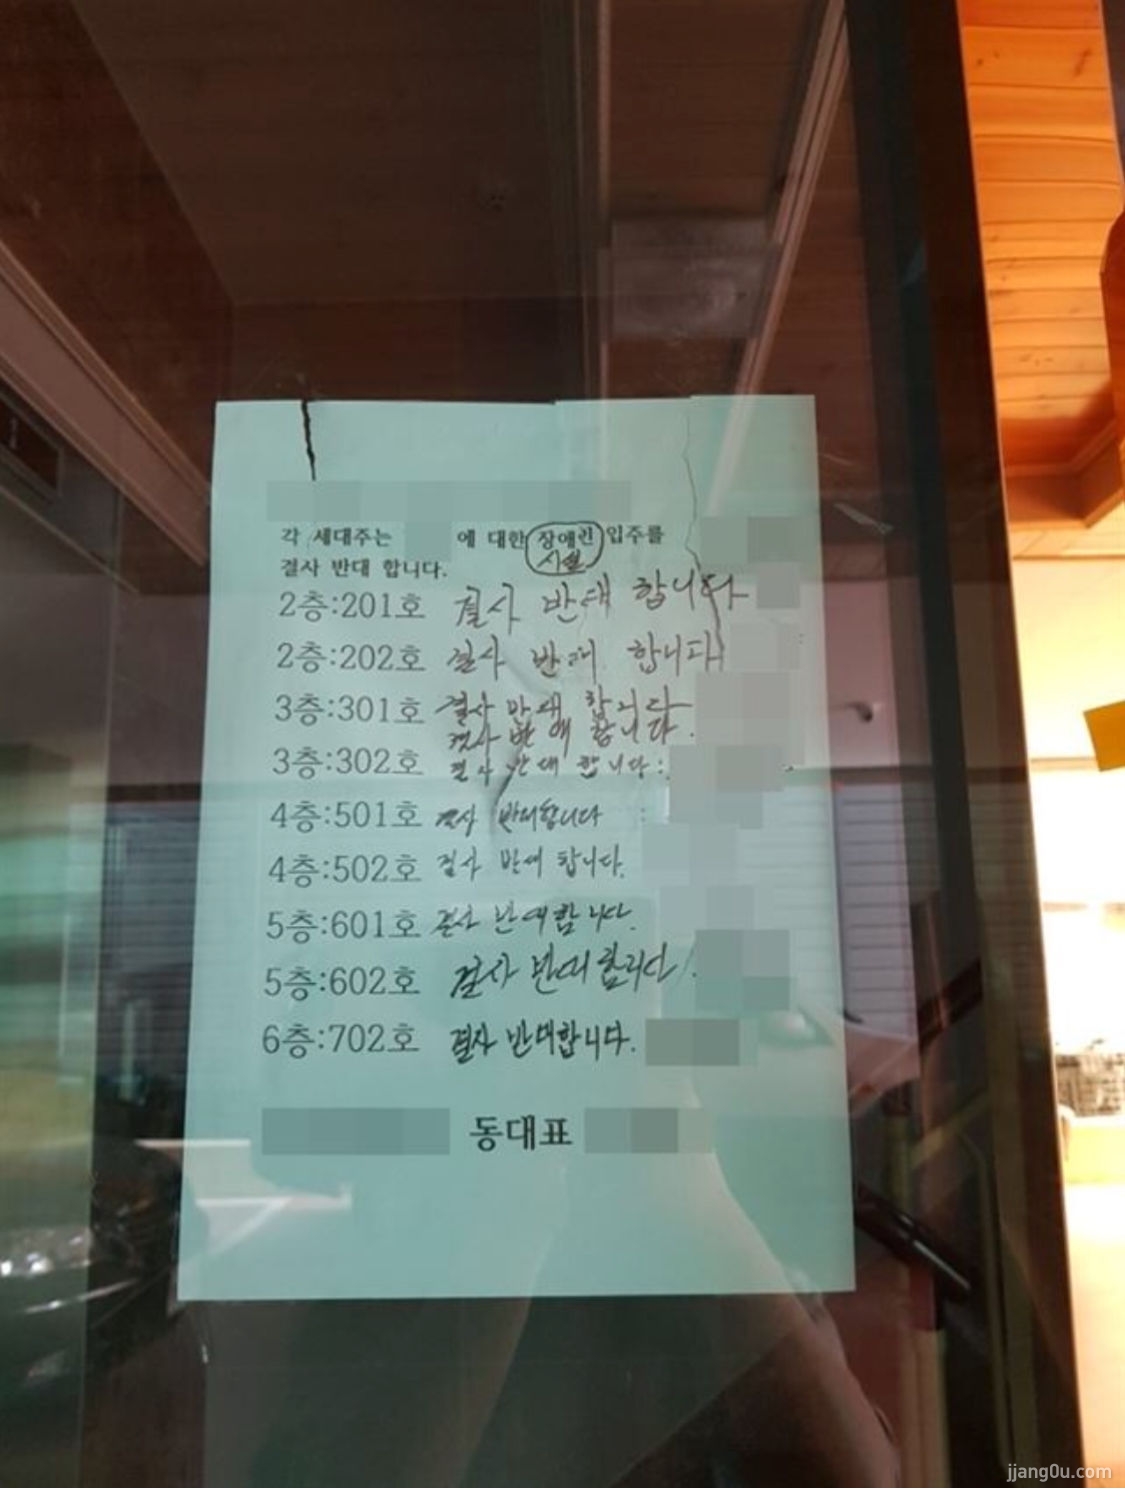 각 세대주는 에 대한 장애인 입주를
시설
결사 반대 합니다.
2층:201호 결사 반대 합니다
2층:202호 결사 반대 합니다
3층:301호 결사 반대 합니다
결사 반대 합니다.
3층:302호 결사 반대 합니다:
4층:501호 결사 반대합니다
4층:502호 결사 반대 합니다.
5층:601호 결사 반대합니다.
5층:602호 결사 반대합니다.
6층:702호 결사 반대합니다.
동대표
jjang0u.com